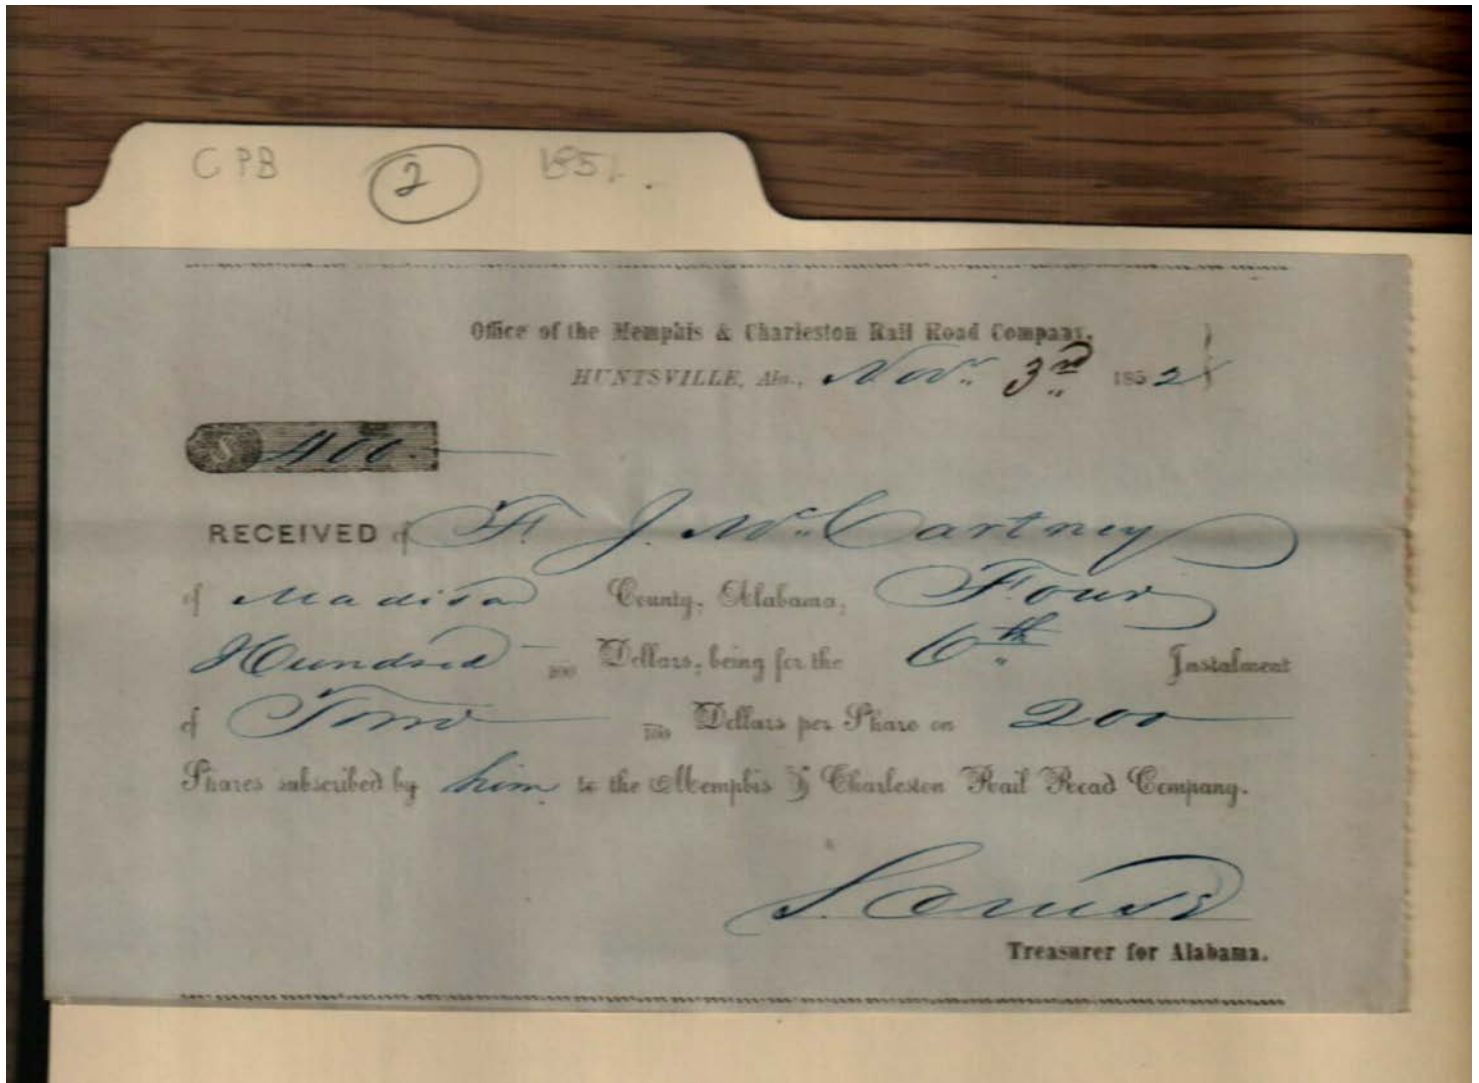 CPB 2 185
Office of the Memphis & Charleston Rail Road Company,
HUNTSVILLE, Ala., Nov. 3rd 1852
$ 400.
RECEIVED of F. J. McCartney
of Madison County, Alabama, Four
Hundred 100 Dollars, being for the 6th Instalment
of Two 100 Dollars per Share on 200
Shares subscribed by him to the Memphis & Charleston Rail Road Company.
S. Cruse
Treasurer for Alabama.